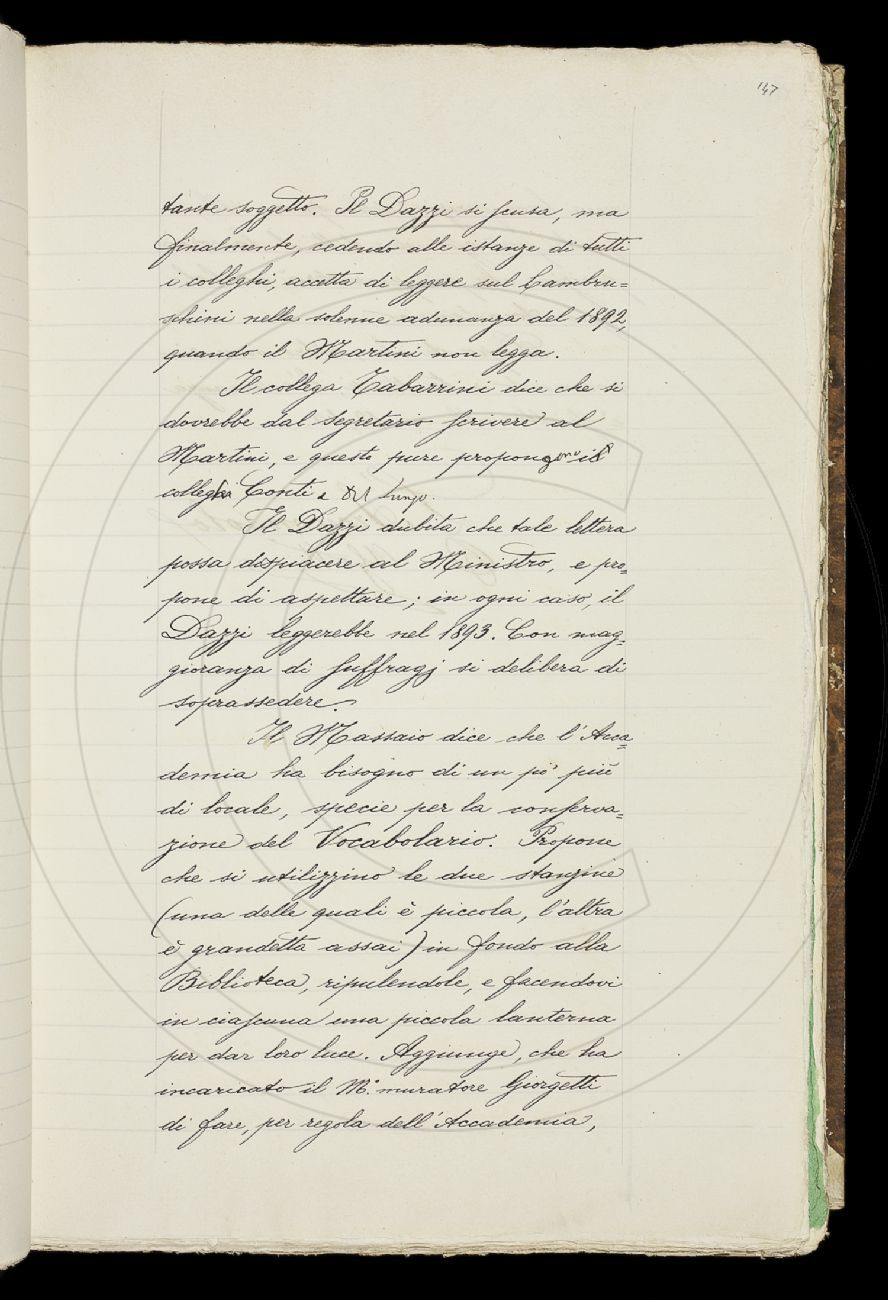 147
tante soggetto. Il Dazzi si scusa, ma
finalmente, cedendo alle istanze di tutti
i colleghi, accetta di leggere sul Lambru=
schini nella solenne adunanza del 1892,
quando il Martini non legga.
Il collega Tabarrini dice che si
dovrebbe dal segretario scrivere al
Martini, e questo pure propongono i
colleghi Conti e Del Lungo.
Il Dazzi dubita che tale lettera
possa dispiacere al Ministro, e pro=
pone di aspettare; in ogni caso, il
Dazzi leggerebbe nel 1893. Con mag=
gioranza di suffragj si delibera di
soprassedere.
Il Massaio dice che l'Acca=
demia ha bisogno di un pò più
di locale, specie per la conserva=
zione del Vocabolario. Propone
che si utilizzino le due stanzine
(una delle quali è piccola, l'altra
è grandetta assai) in fondo alla
Biblioteca, ripulendole, e facendovi
in ciascuna una piccola lanterna
per dar loro luce. Aggiunge, che ha
incaricato il M.° muratore Giorgetti
di fare, per regola dell'Accademia,